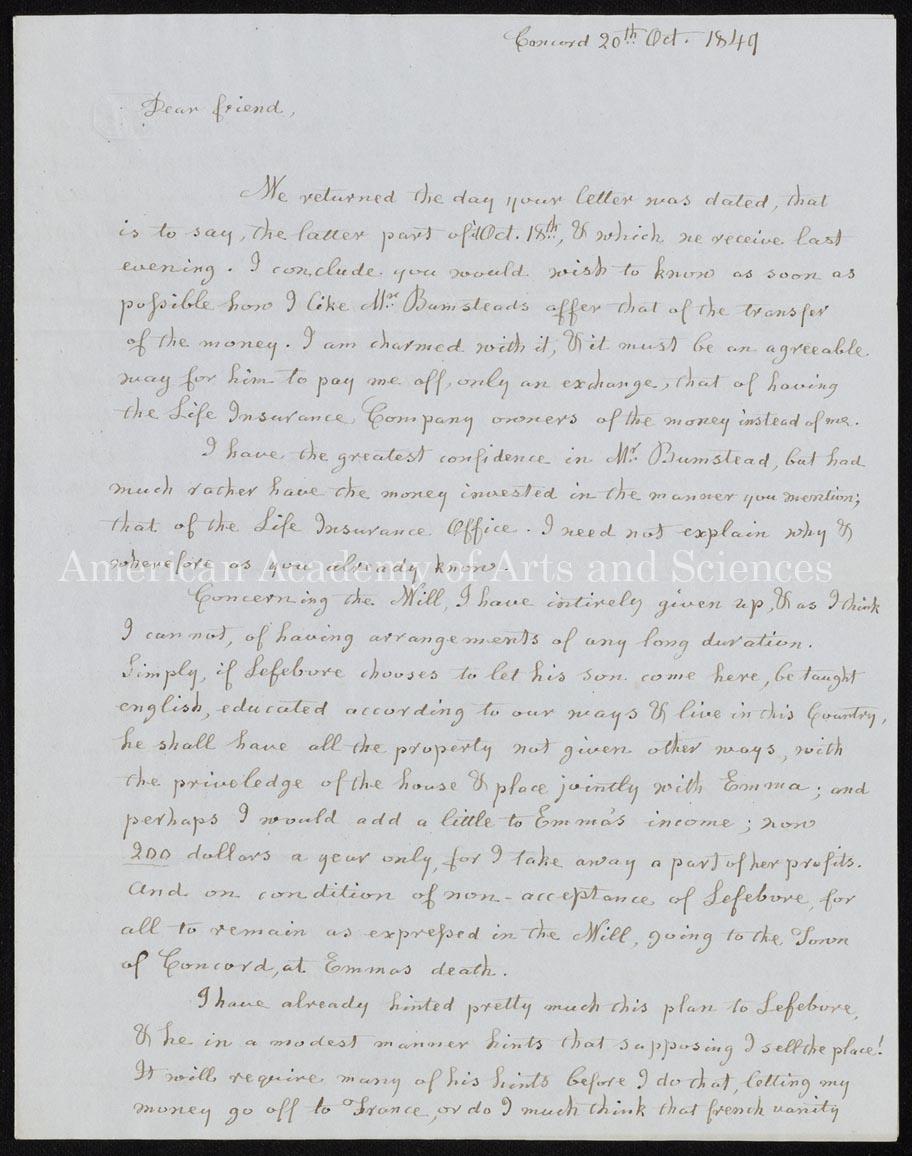 Concord 20th Oct. 1849
Dear friend,
We returned the day your letter was dated, that
is to say, the latter part of Oct. 18th, & which we receive last
evening. I conclude you would wish to know as soon as
possible how I like Mr. Bumsteads offer that of the transfer
of the money. I am charmed with it, & it must be an agreeable
way for him to pay me off, only an exchange, that of having
the Life Insurance Company owners of the money instead of me.
I have the greatest confidence in Mr. Bumstead, but had
much rather have the money invested in the manner you mention;
that of the Life Insurance Office. I need not explain why &
wherefore as you already know.
American Academy of Arts and Sciences
Concerning the Will, I have intirely given up, & as I think
I can not, of having arrangements of any long duration.
Simply, if Lefebvre chooses to let his son come here, be taught
english, educated according to our ways & live in this Country,
he shall have all the property not given other ways, with
the priveledge of the house & place jointly with Emma; and
perhaps I would add a little to Emma's income; now
200 dollars a year only, for I take away a part of her profits.
And on condition of non-acceptance of Lefebvre, for
all to remain as expressed in the Will, going to the Town
of Concord, at Emmas death.
I have already hinted pretty much this plan to Lefebvre,
& he in a modest manner hints that supposing I sell the place!
It will require many of his hints before I do that, letting my
money go off to France, or do I much think that french vanity